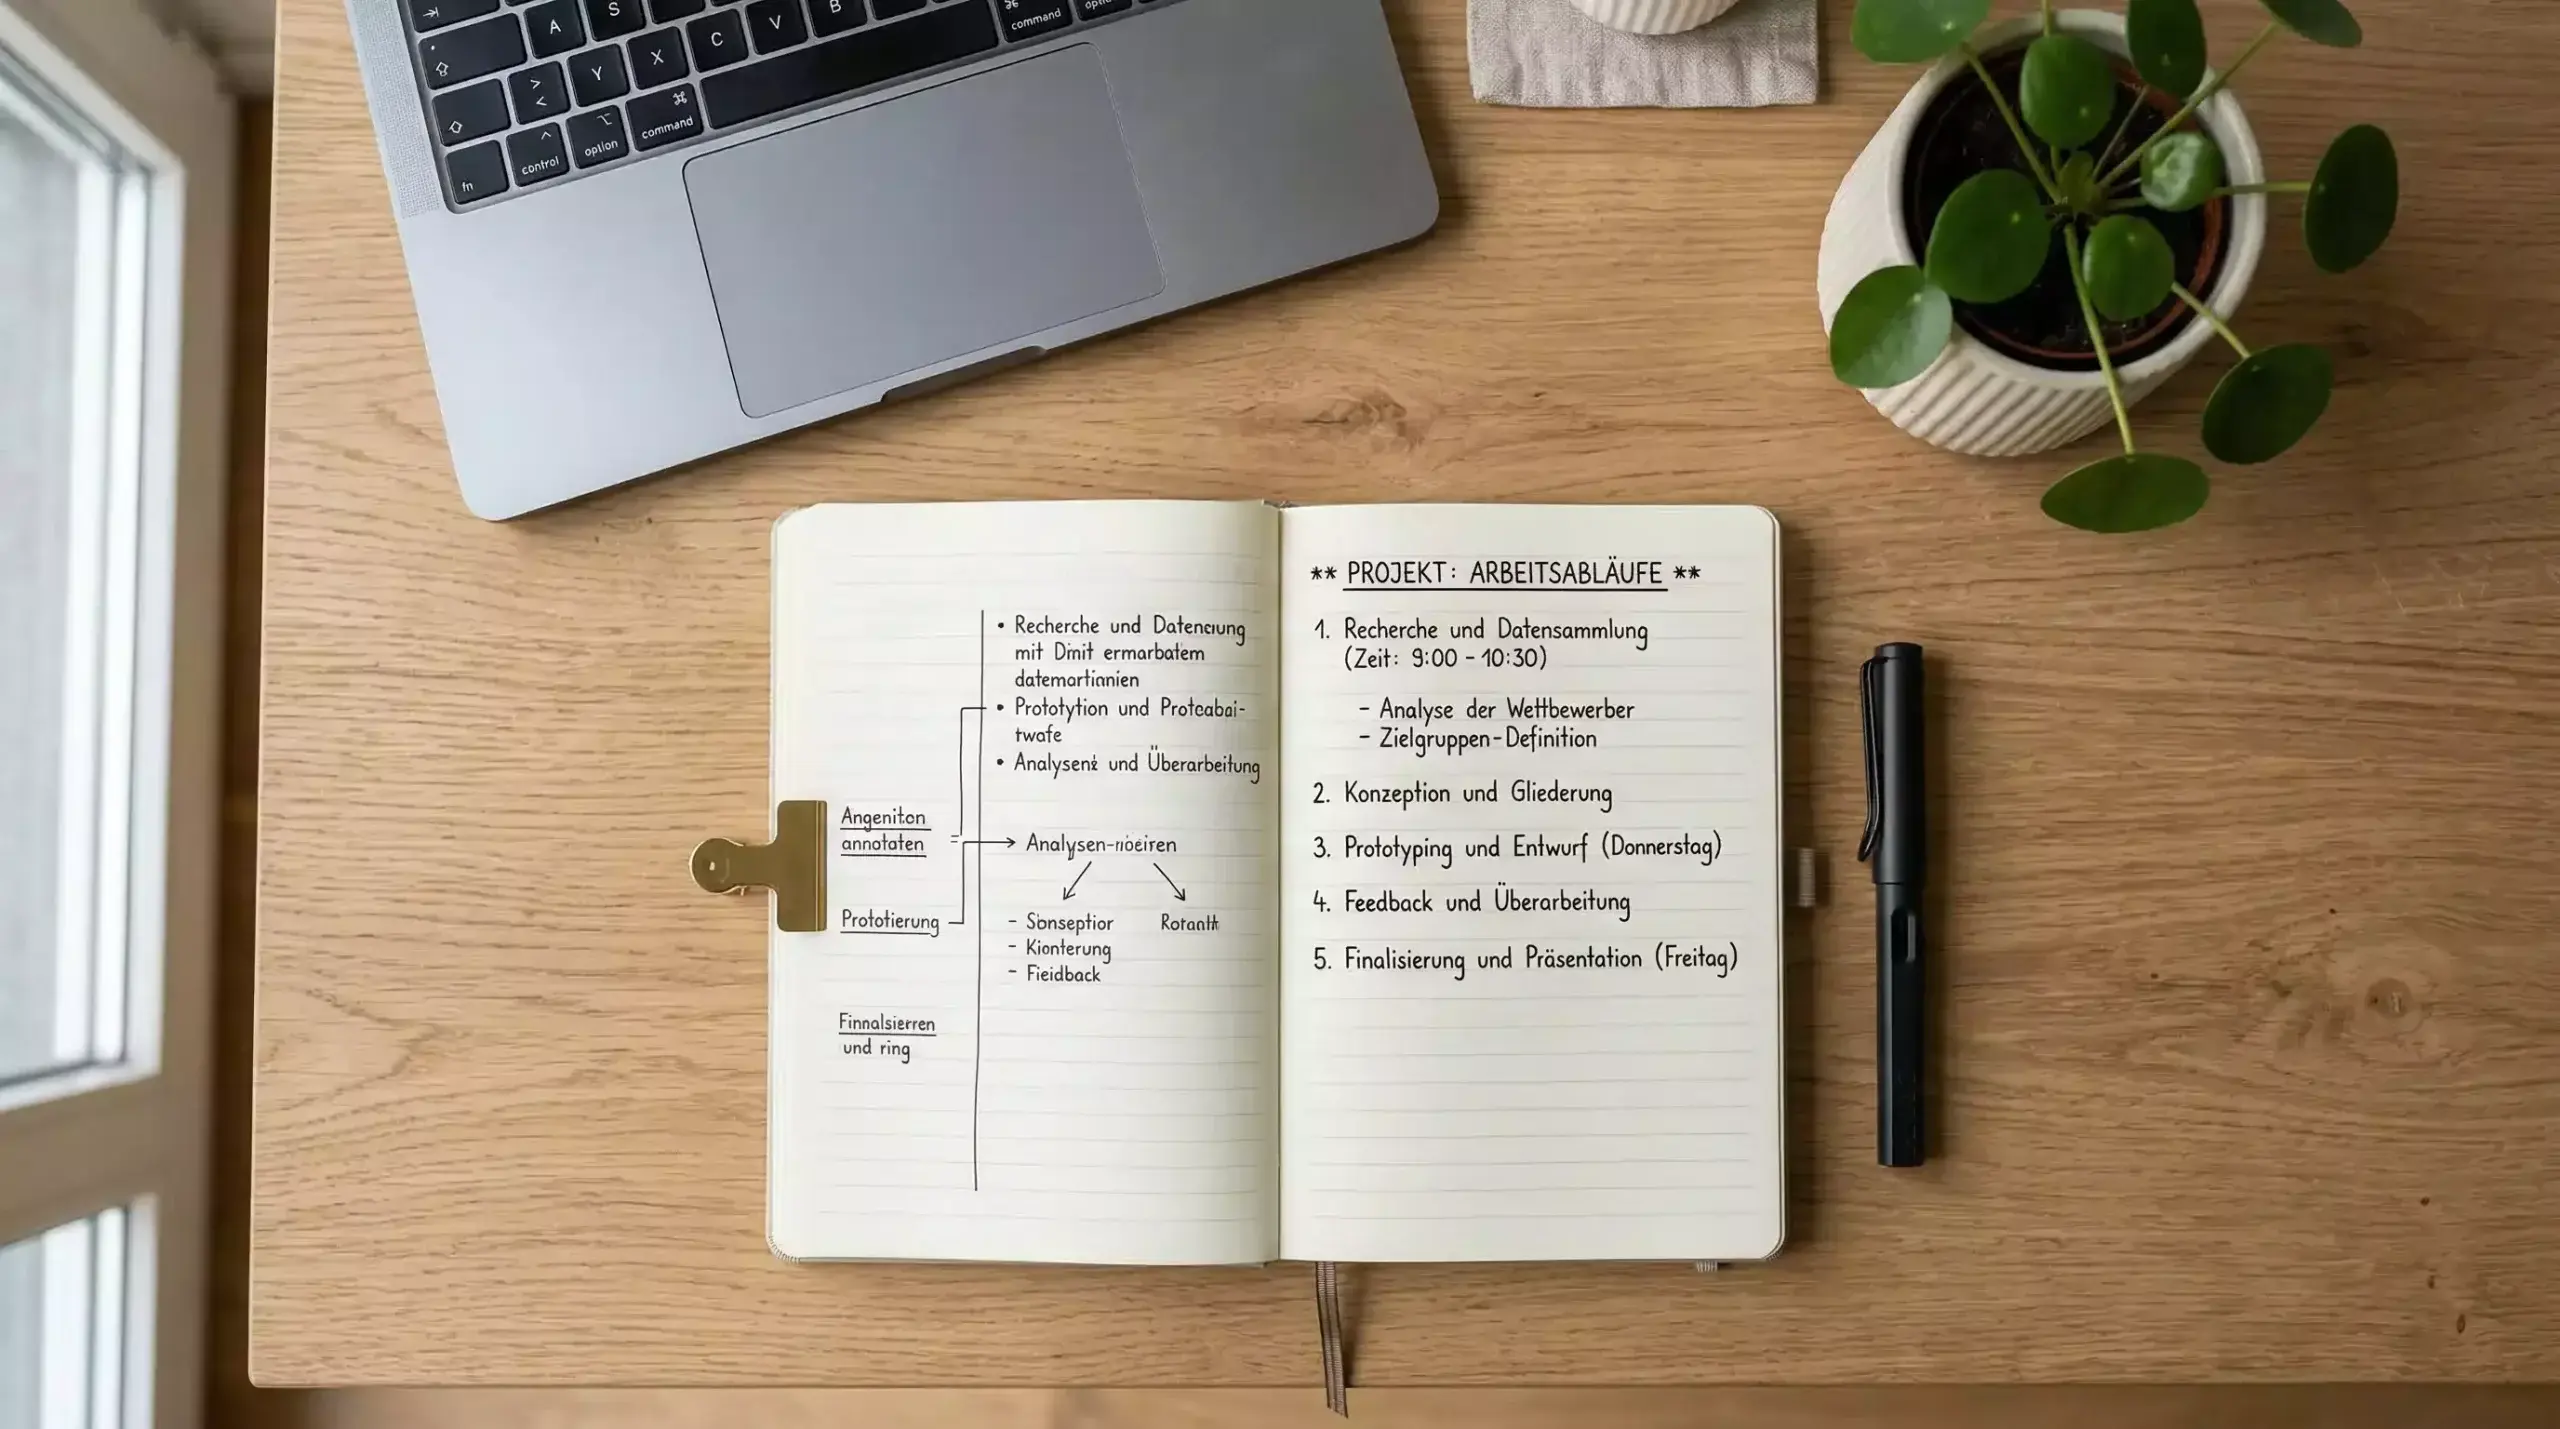 A S
Y X C V B
> <
fn control option command
command
Recherche und
mit
Prototytion und
twafe
und Überarbeitung
Angeniton
annotaten
Prototierung
- Sonseptior
- Kionterung
- Fieidback
Finnalsierren
und ring
** PROJEKT: ARBEITSABLÄUFE **
1. Recherche und Datensammlung
(Zeit: 9:00 - 10:30)
- Analyse der Wettbewerber
- Zielgruppen-Definition
2. Konzeption und Gliederung
3. Prototyping und Entwurf (Donnerstag)
4. Feedback und Überarbeitung
5. Finalisierung und Präsentation (Freitag)